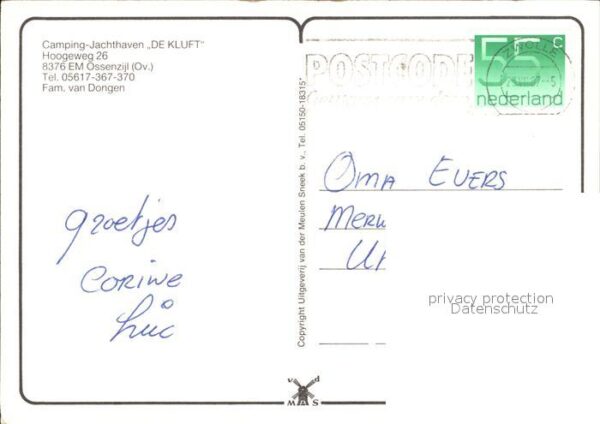 Camping-Jachthaven „DE KLUFT"
Hoogeweg 26
8376 EM Ossenzijl (Ov.)
Tel. 05617-367-370
Fam. van Dongen
POSTCODE
ZWOLLE
55 c
nederland
Copyright Uitgeverij van der Meulen Sneek b. v., Tel. 05150-18315*
Oma Evers
Merk
Ut
groetjes
Corine
Luc
privacy protection
Datenschutz
v d
MAS